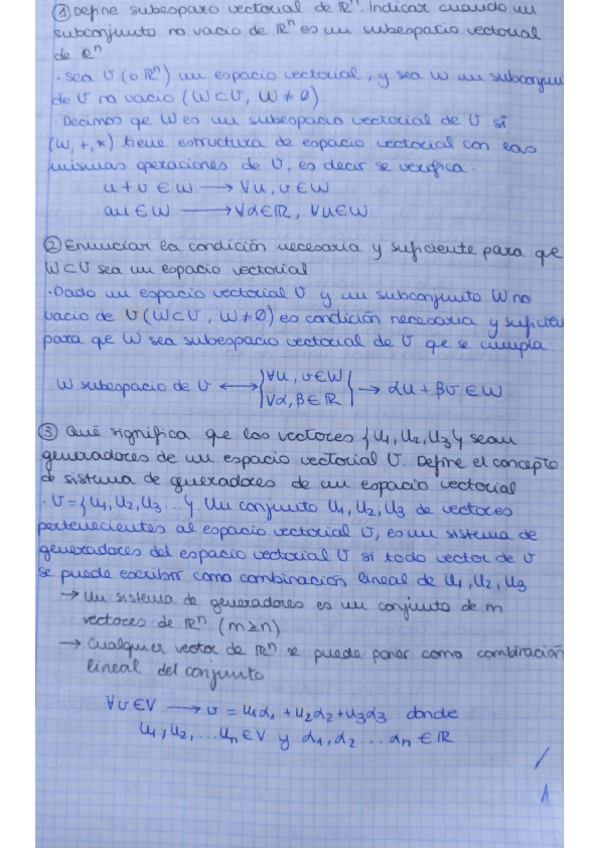 ① Define subespaxo vectorial de ℝⁿ. Indicar cuando un
subconjunto no vacio de ℝⁿ es un subespacio vectorial
de ℝⁿ
· Sea U (o ℝⁿ) un espacio vectorial, y sea W un subconjun
de U no vacio (W⊂U, W≠∅).
· Decimos qe W es un subespacio vectorial de U si
(W, +, *) tiene estructura de espacio vectorial con las
mismas operaciones de U, es decir se verifica.
u + v ∈ W ⟶ ∀u, v ∈ W
αu ∈ W ⟶ ∀α∈ℝ, ∀u∈W
② Enunciar la condición necesaria y suficiente para que
W⊂U sea un espacio vectorial
· Dado un espacio vectorial U y un subconjunto W no
vacio de U (W⊂U, W≠∅) es condición necesaria y suficie
para que W sea subespacio vectorial de U qe se cumpla.
W subespacio de U ⟷ {∀u, v∈W
∀α, β∈ℝ} → αu + βv ∈ W
③ Qué significa que los vectores {u₁, u₂, u₃} sean
generadores de un espacio vectorial U. Define el concepto
de sistema de generadores de un espacio vectorial
· U = {u₁, u₂, u₃...}. Un conjunto u₁, u₂, u₃ de vectores
pertenecientes al espacio vectorial U, es un sistema de
generadores del espacio vectorial U si todo vector de U
se puede escribir como combinación lineal de u₁, u₂, u₃
→ Un sistema de generadores es un conjunto de m
vectores de ℝⁿ (m≥n)
→ Cualquier vector de ℝⁿ se puede poner como combinación
lineal del conjunto
∀v∈V ⟶ v = u₁α₁ + u₂α₂ + u₃α₃ donde
u₁, u₂, ... uₙ ∈ V y α₁, α₂ ... αₙ ∈ ℝ
/
1